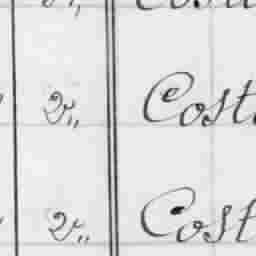 2,, Cost
2,, Cost